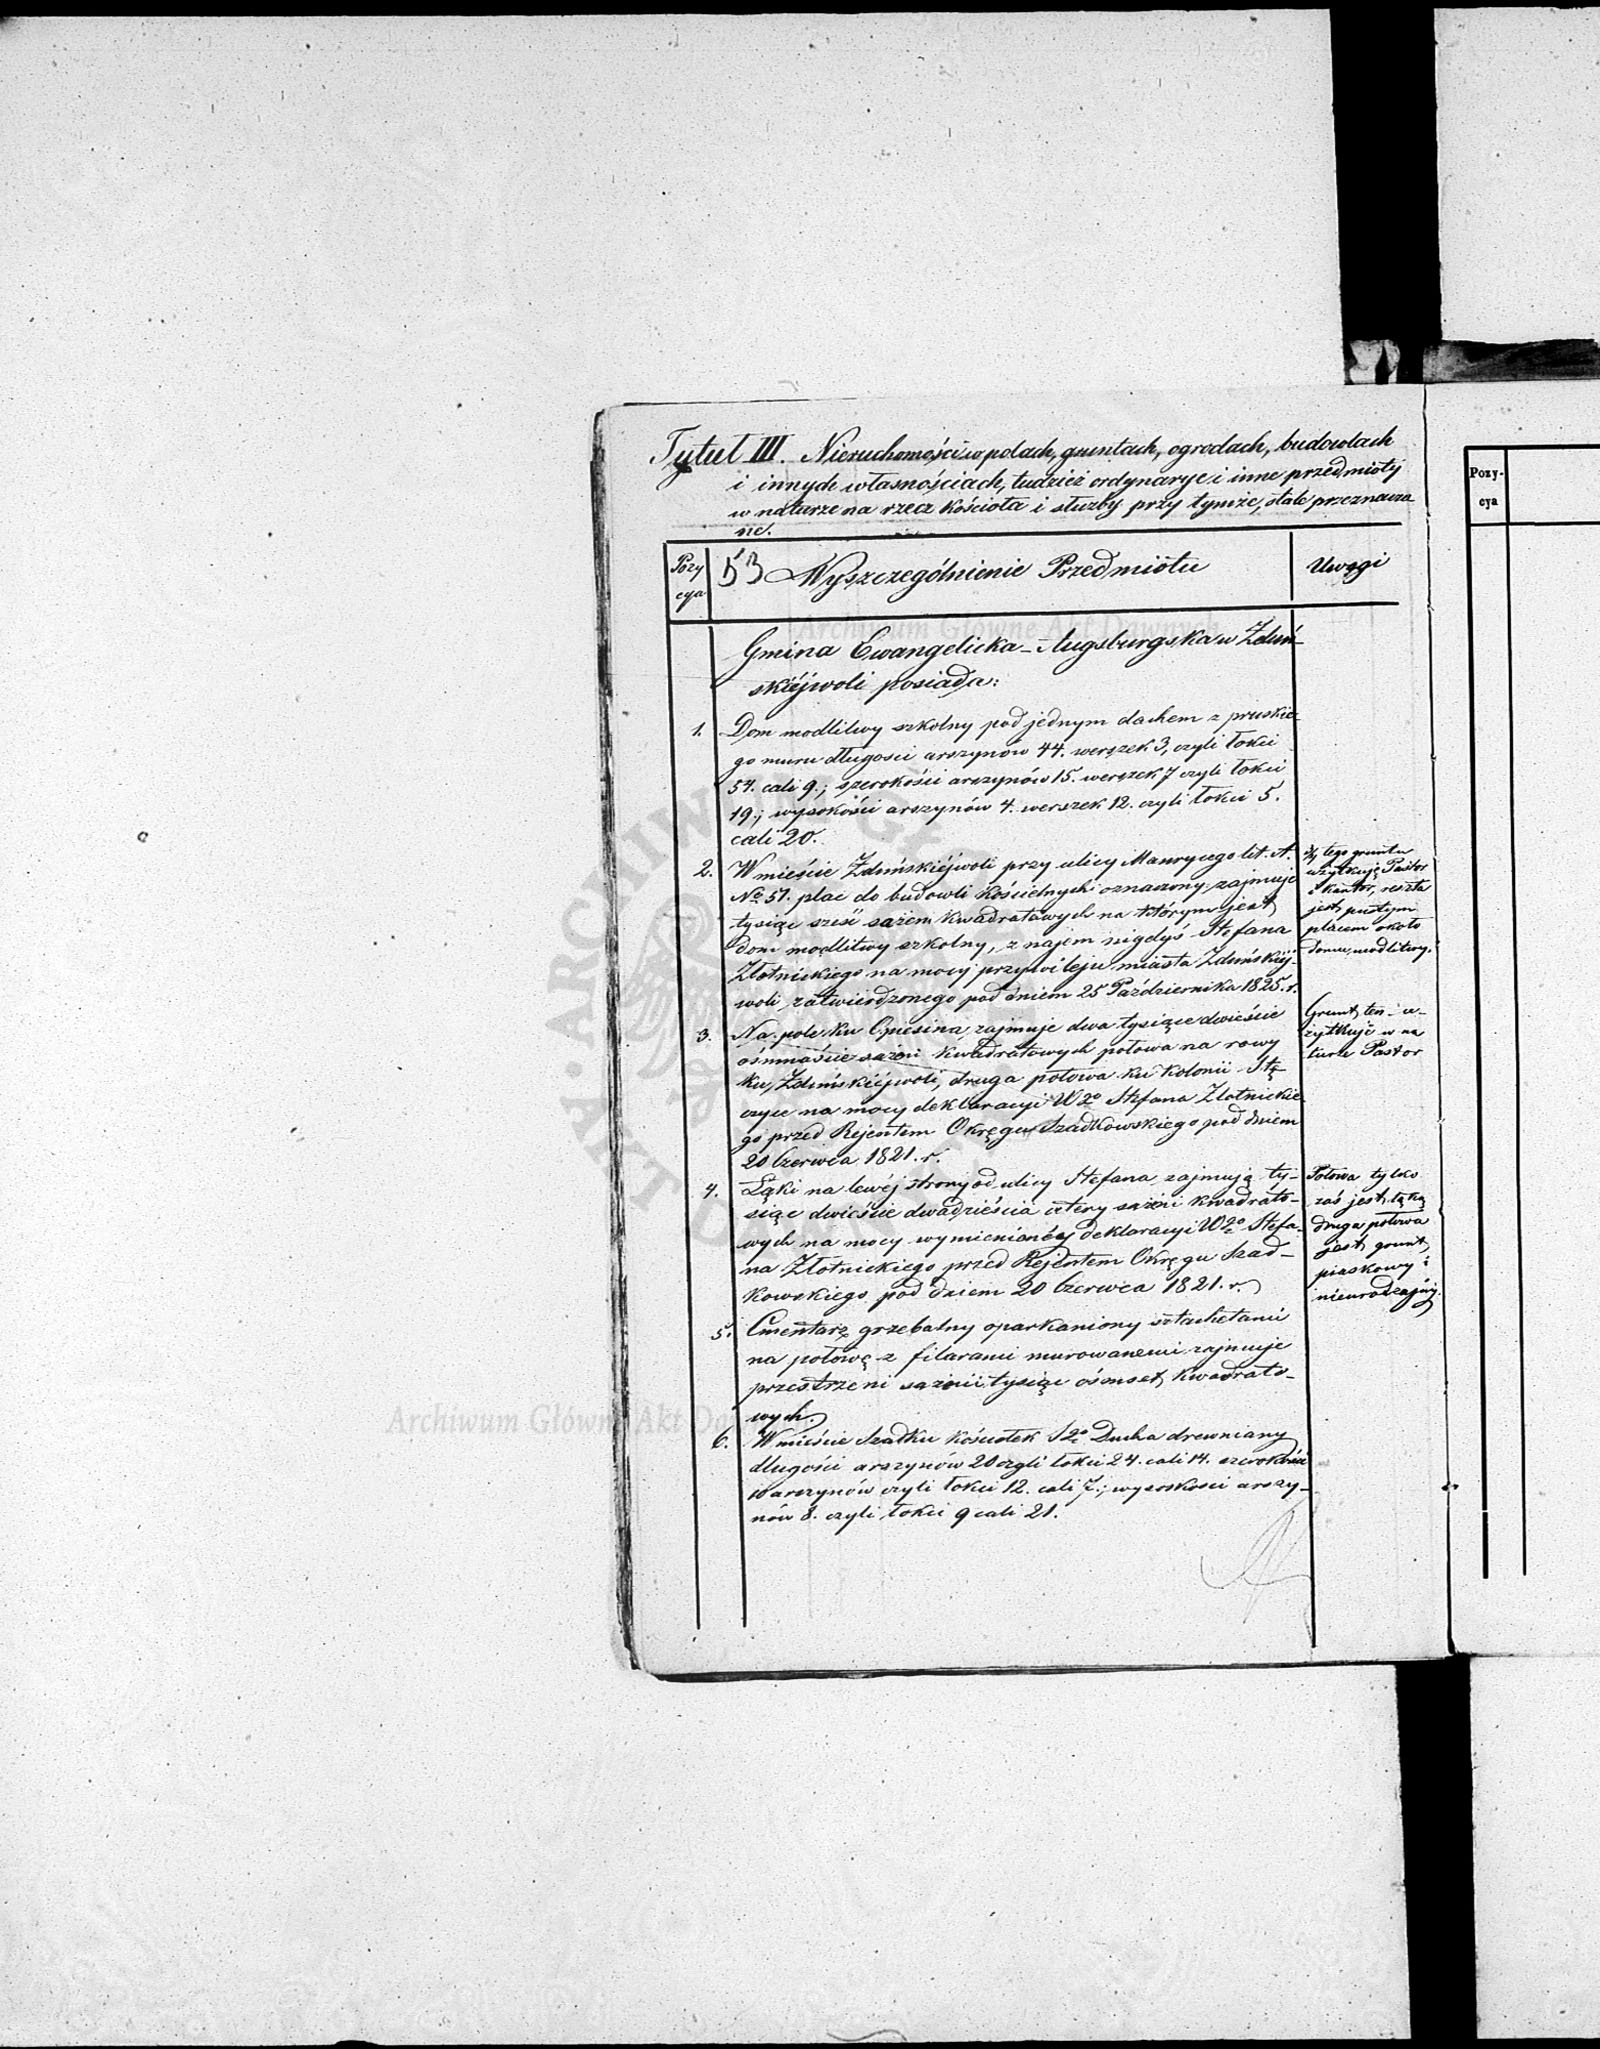 Tytuł III. Nieruchomości w polach, gruntach, ogrodach, budowlach
i innych własnościach, tudzież ordynarye i inne przedmioty
w naturze na rzecz kościoła i służby przy tymże, stale przeznaczo
ne.
Pozy
cya
53 Wyszczególnienie Przedmiotu
Uwagi
Gmina Ewangelicka-Augsburgska w Zduń-
skiéjwoli posiada:
1. Dom modlitwy szkolny pod jednym dachem z pruskie-
go muru długości arszynów 44. werszek 3, czyli łokci
54. cali 9.; szerokości arszynów 15. werszek 7 czyli łokci
19.; wysokości arszynów 4. werszek 12. czyli łokci 5.
cali 20.
2. W mieście Zduńskiéjwoli przy ulicy Maurycego lit. A.
No 51. plac do budowli kościelnych oznaczony, zajmuje
tysiąc sześć sażem kwadratowych na którym jest
dom modlitwy szkolny, z najem nigdyś Stefana
Złotnickiego na mocy przywileju miasta Zduńskiéj-
woli zatwierdzonego pod dniem 25 Października 1825. r.
tego gruntu
użytkują Pastor
i kantor, reszta
jest pustym
placem około
domu modlitwy.
3. Na pole ku Opiesiną zajmuje dwa tysiące dwieście
ośmnaście sażeni kwadratowych połowa na rowy
ku Zduńskiéjwoli, druga połowa ku kolonii Stę-
czyce na mocy deklaracyi Wgo Stefana Złotnickie-
go przed Rejentem Okręgu Szadkowskiego pod dniem
20 Czerwca 1821. r.
Grunt ten u-
żytkuje w na
turze Pastor
4. Łąki na lewéj strony od ulicy Stefana, zajmują ty-
siąc dwieście dwadzieścia cztery sażeni kwadrato-
wych na mocy wymienionéj deklaracyi Wgo Stefa-
na Złotnickiego przed Rejentem Okręgu Szad-
kowskiego pod dniem 20 Czerwca 1821. r.
Połowa tylko
zaś jest łąką
druga połowa
jest grunt
piaskowy i
nieurodzajny.
5. Cmentarz grzebalny oparkaniony sztachetami
na połowę z filarami murowanemi zajmuje
przestrzeni sażeni tysiąc ośmset kwadrato-
wych.
6. W mieście Szadku kościołek Sgo Ducha drewniany
długości arszynów 20 czyli łokci 24. cali 14. szerokości
10 arszynów czyli łokci 12. cali 7.; wysokosci arszy-
nów 8. czyli łokci 9 cali 21.
Pozy-
cya
Archiwum Główne Akt Dawnych
Archiwum Główne Akt Da